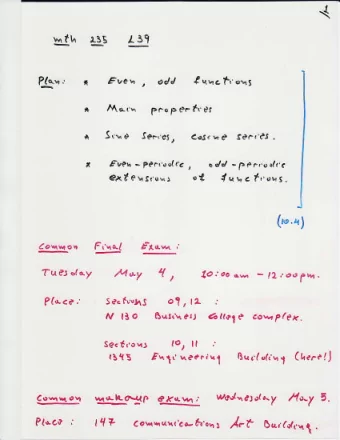 1
mth 235 L39
Plan: * Even, odd functions
* Main properties
* Sine series, cosine series.
* Even-periodic, odd-periodic
extensions of functions.
(10.4)
Common Final Exam:
Tuesday May 4, 10:00am - 12:00pm.
Place: sections 09, 12 :
N 130 Business College complex.
sections 10, 11 :
1345 Engineering Building (here!)
common makeup exam: Wednesday May 5.
Place: 147 communications Art Building.